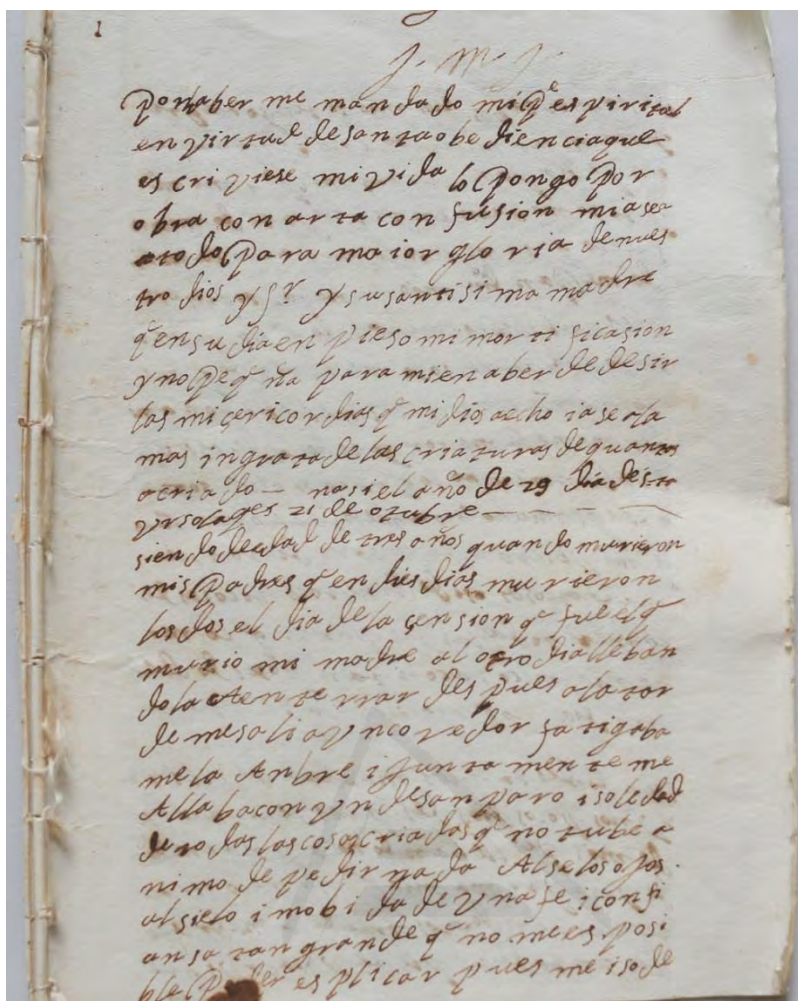 1
J. M. J.
Por haber me mandado mi Pe espirital
en virtud de santa obediencia que
escriviese mi vida lo Pongo Por
obra con arta confusion mia sea
todo Para maior gloria de nues
tro dios y Sr y su santisima madre
q en su dia enpieso mi mortificasion
y no Peqña para mi en aber de desir
las misericordias q mi dios a echo ia se ola
mas ingrata de las criaturas de quantas
a criado — nasi el año de 29 dia de sta
Ursola q es 21 de otubre —
siendo de edad de tres años quando murieron
mis Padres q en dies dias murieron
los dos el dia de la çension q fue el q
murio mi madre al otro dia lleban
dola A enterrar despues a la tar
de me sali a un coredor fatigaba
me la Anbre i juntamente me
Allaba con un desanparo i soledad
de todas las cosas criadas q no tube a
nimo de pedir nada Alse los ojos
al sielo i mobida de una fe i confi
ansa tan grande q no me es posi
ble Poder esplicar pues me iso de